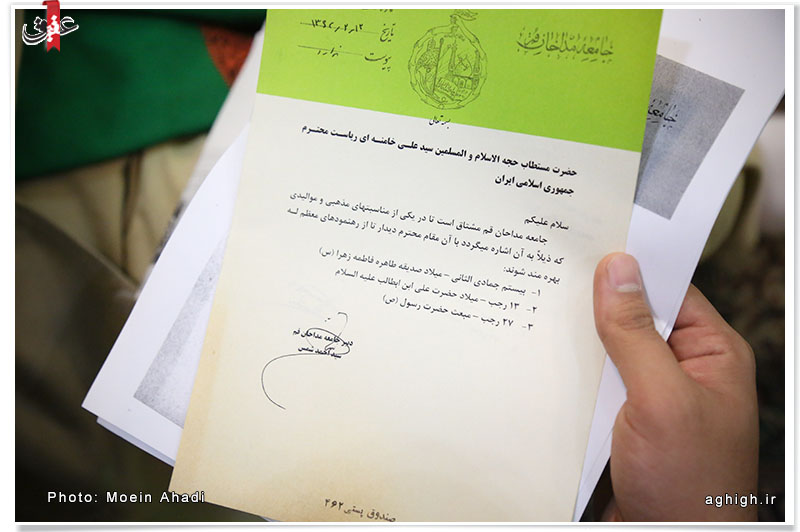 عقیق
تاریخ ۱۳۶۲،۲،۱۲
پیوست ندارد
جامعه مداحان قم
بسمه تعالی
حضرت مستطاب حجه الاسلام و المسلمین سید علی خامنه ای ریاست محترم
جمهوری اسلامی ایران
سلام علیکم
جامعه مداحان قم مشتاق است تا در یکی از مناسبتهای مذهبی و موالیدی
که ذیلاً به آن اشاره میگردد با آن مقام محترم دیدار تا از رهنمودهای معظم له
بهره مند شوند:
۱- بیستم جمادی الثانی – میلاد صدیقه طاهره فاطمه زهرا (س)
۲- ۱۳ رجب – میلاد حضرت علی ابن ابطالب علیه السلام
۳- ۲۷ رجب – مبعث حضرت رسول (ص)
دبیر جامعه مداحان قم
سید احمد شمس
صندوق پستی ۴۶۲
Photo: Moein Ahadi
aghigh.ir